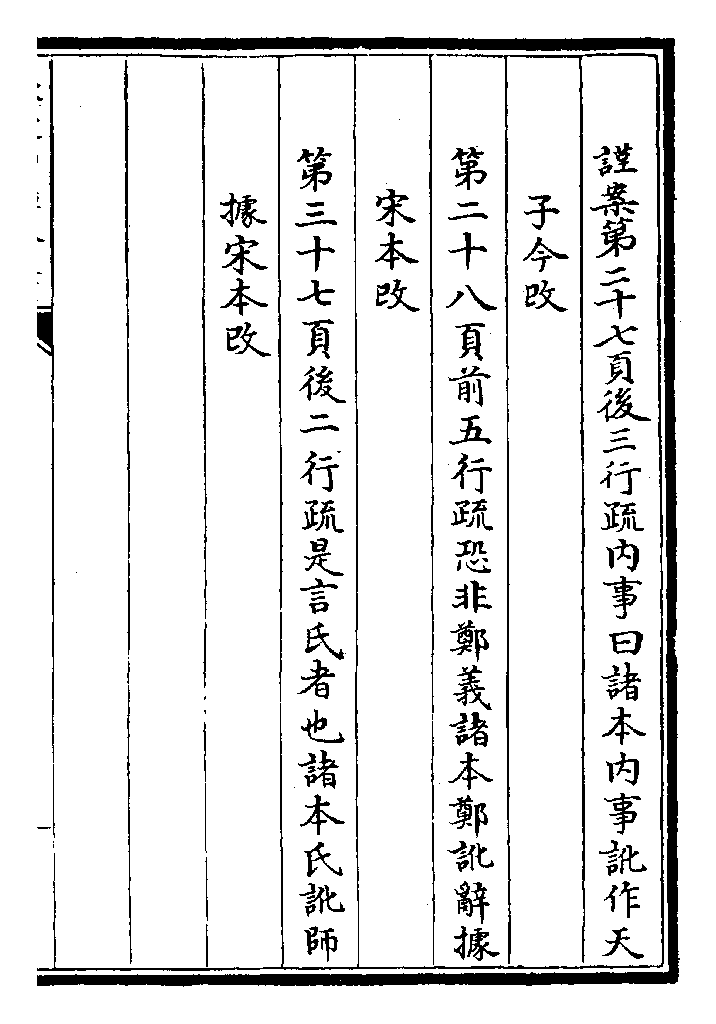 謹案第二十七頁後三行疏内事曰諸本内事訛作天
子今改
第二十八頁前五行疏恐非鄭義諸本鄭訛辭據
宋本改
第三十七頁後二行疏是言氏者也諸本氏訛師
據宋本改